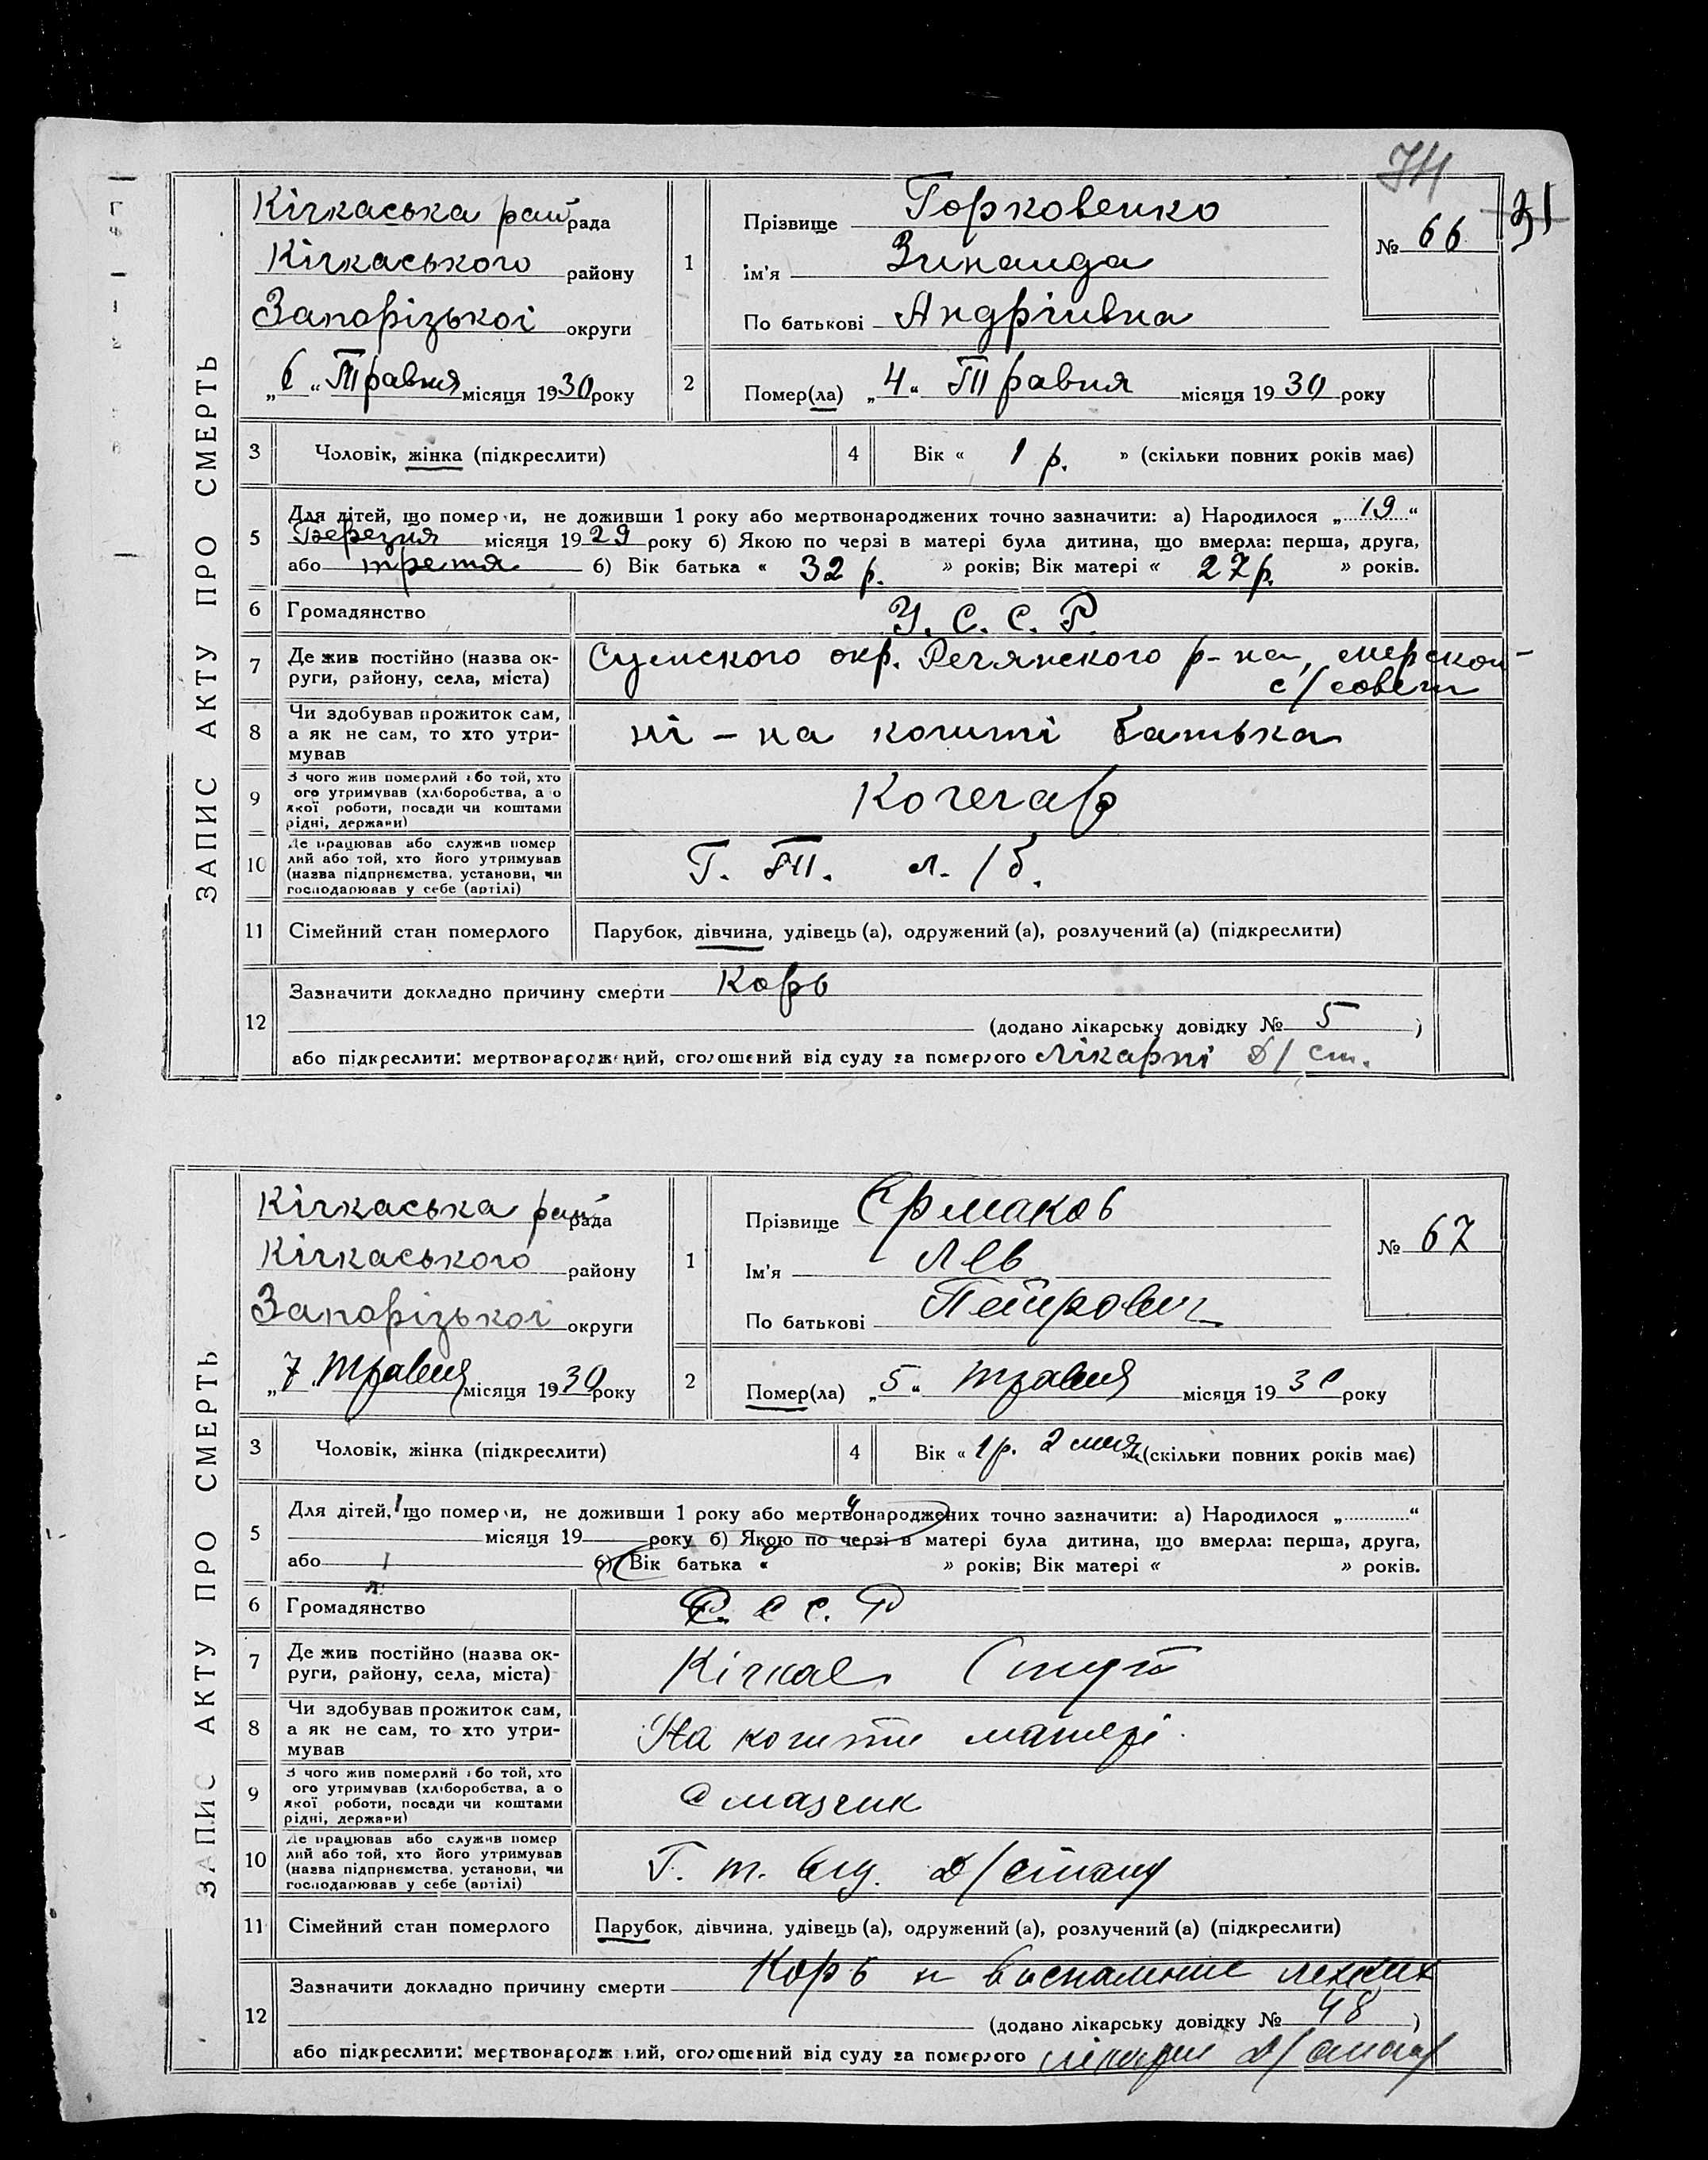 74
31
ЗАПИС АКТУ ПРО СМЕРТЬ
Кічкаська рай рада
Кічкаського району
Запорізької округи
„6“ Травня місяця 1930 року
1
Прізвище Горковенко
ім'я Зинаида
По батькові Андріївна
№ 66
2
Помер(ла) „4“ Травня місяця 1930 року
3
Чоловік, жінка (підкреслити)
4
Вік « 1 р. » (скільки повних років має)
5
Для дітей, що померли, не доживши 1 року або мертвонароджених точно зазначити: а) Народилося „19“
Березня місяця 1929 року б) Якою по черзі в матері була дитина, що вмерла: перша, друга,
або третя б) Вік батька « 32 р. » років; Вік матері « 27 р. » років.
6
Громадянство
У. С. С. Р.
7
Де жив постійно (назва ок-
руги, району, села, міста)
Сумского окр. Речянского р-на,
с/совет
8
Чи здобував прожиток сам,
а як не сам, то хто утри-
мував
ні - на кошті батька
9
З чого жив померлий або той, хто
ого утримував (хліборобства, а о
якої роботи, посади чи коштами
рідні, держави)
Кочегар
10
Де працював або служив помер
лий або той, хто його утримував
(назва підприємства, установи, чи
господарював у себе (артілі)
Г. Т. л. / б.
11
Сімейний стан померлого
Парубок, дівчина, удівець (а), одружений (а), розлучений (а) (підкреслити)
12
Зазначити докладно причину смерти Корь
(додано лікарську довідку № 5 )
або підкреслити: мертвонароджений, оголошений від суду за померлого лікарні Д/ ст.
ЗАПИС АКТУ ПРО СМЕРТЬ
Кічкаська рай рада
Кічкаського району
Запорізької округи
„7 Травня місяця 1930 року
1
Прізвище Єрмаков
Ім'я Лев
По батькові Петрович
№ 67
2
Помер(ла) „5“ травня місяця 1930 року
3
Чоловік, жінка (підкреслити)
4
Вік « 1 р. 2 » (скільки повних років має)
5
Для дітей, що померли, не доживши 1 року або мертвонароджених точно зазначити: а) Народилося „ “
місяця 19 року б) Якою по черзі в матері була дитина, що вмерла: перша, друга,
або б) Вік батька « » років; Вік матері « » років.
6
Громадянство
С. С. Р
7
Де жив постійно (назва ок-
руги, району, села, міста)
Кічкас
8
Чи здобував прожиток сам,
а як не сам, то хто утри-
мував
На кошти матері
9
З чого жив померлий або той, хто
ого утримував (хліборобства, а о
якої роботи, посади чи коштами
рідні, держави)
Смазчик
10
Де працював або служив помер
лий або той, хто його утримував
(назва підприємства, установи, чи
господарював у себе (артілі)
Г. т. Д/стану
11
Сімейний стан померлого
Парубок, дівчина, удівець (а), одружений (а), розлучений (а) (підкреслити)
12
Зазначити докладно причину смерти Корь и воспаление легких
(додано лікарську довідку № 48 )
або підкреслити: мертвонароджений, оголошений від суду за померлого лікарні Д/стану